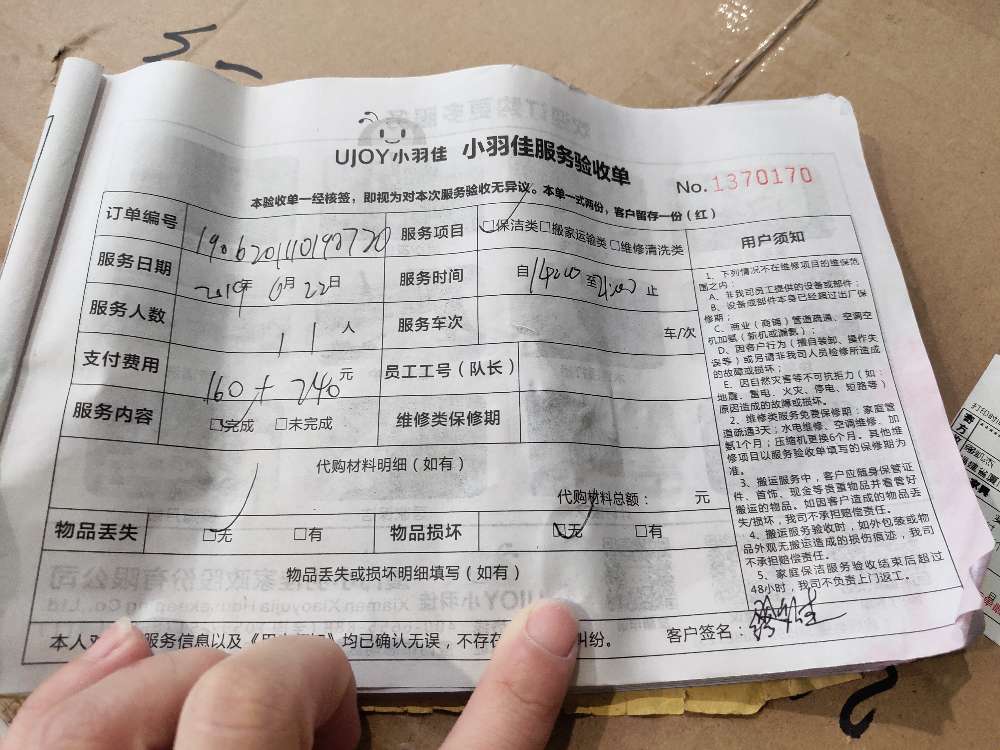 UJOY小羽佳 小羽佳服务验收单
No. 1370170
本验收单一经核签，即视为对本次服务验收无异议。本单一式两份，客户留存一份（红）
订单编号 服务项目 □保洁类□搬家运输类□维修清洗类
服务日期 2019年 6月22日 服务时间 自 至 止
服务人数 人 服务车次 车/次
支付费用 160+240元 员工工号（队长）
服务内容 □完成 □未完成 维修类保修期
代购材料明细（如有）
代购材料总额： 元
物品丢失 □无 □有 物品损坏 □无 □有
物品丢失或损坏明细填写（如有）
本人对 服务信息以及《 》均已确认无误，不存在 纠纷。
客户签名：
用户须知
1、下列情况不在维修项目的维保范
围之内：
A、非我司员工提供的设备或部件；
B、设备或部件本身已经超过出厂保
修期；
C、商业（商铺）管道疏通、空调空
机加氨（新机或漏氨）；
D、因客户行为（擅自装卸、操作失
误等）或另请非我司人员检修所造成
的故障或损坏；
E、因自然灾害等不可抗拒力（如：
地震、雷电、火灾、停电、短路等）
原因造成的故障或损坏。
2、维修类服务免费保修期：家庭管
道疏通3天；水电维修、空调维修、加
氨1个月；压缩机更换6个月。其他维
修项目以服务验收单填写的保修期为
准。
3、搬运服务中，客户应随身保管证
件、首饰、现金等贵重物品并看管好
搬运的物品。如因客户造成的物品丢
失/损坏，我司不承担赔偿责任。
4、搬运服务验收时，如外包装或物
品外观无搬运造成的损伤痕迹，我司
不承担赔偿责任。
5、家庭保洁服务验收结束后超过
48小时，我司不负责上门返工。